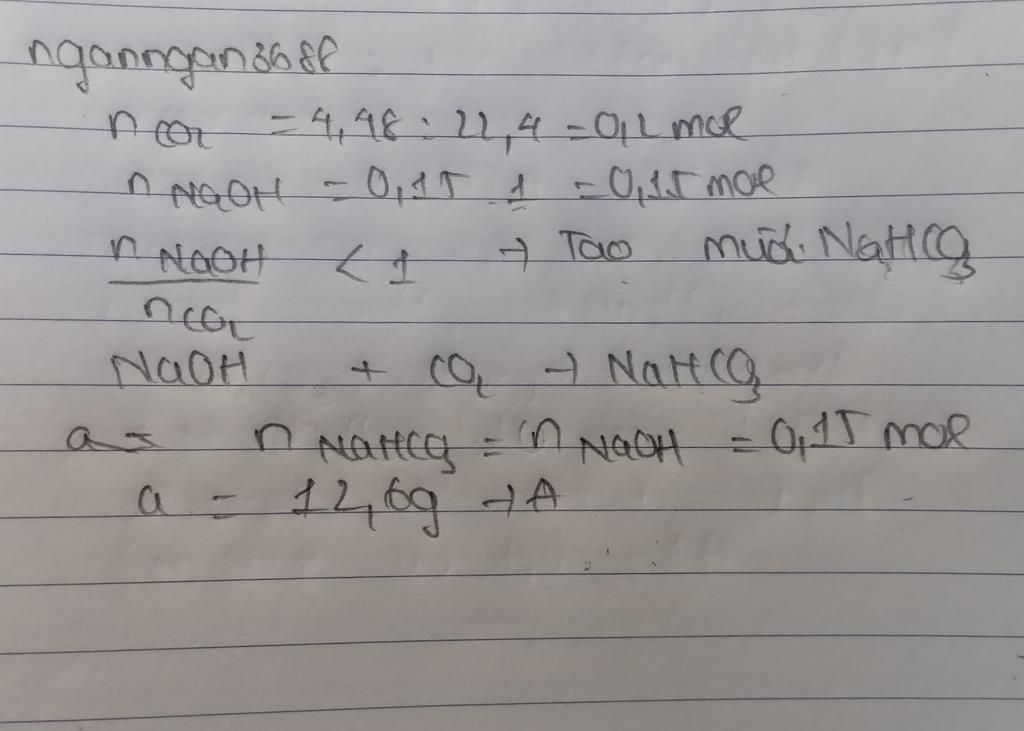 nganngan3688
n CO2 = 4,48 : 22,4 = 0,2 mol
n NaOH = 0,15 . 1 = 0,15 mol
n NaOH / n CO2 < 1 → Tạo muối NaHCO3
NaOH + CO2 → NaHCO3
a = n NaHCO3 = n NaOH = 0,15 mol
a = 12,6g → A